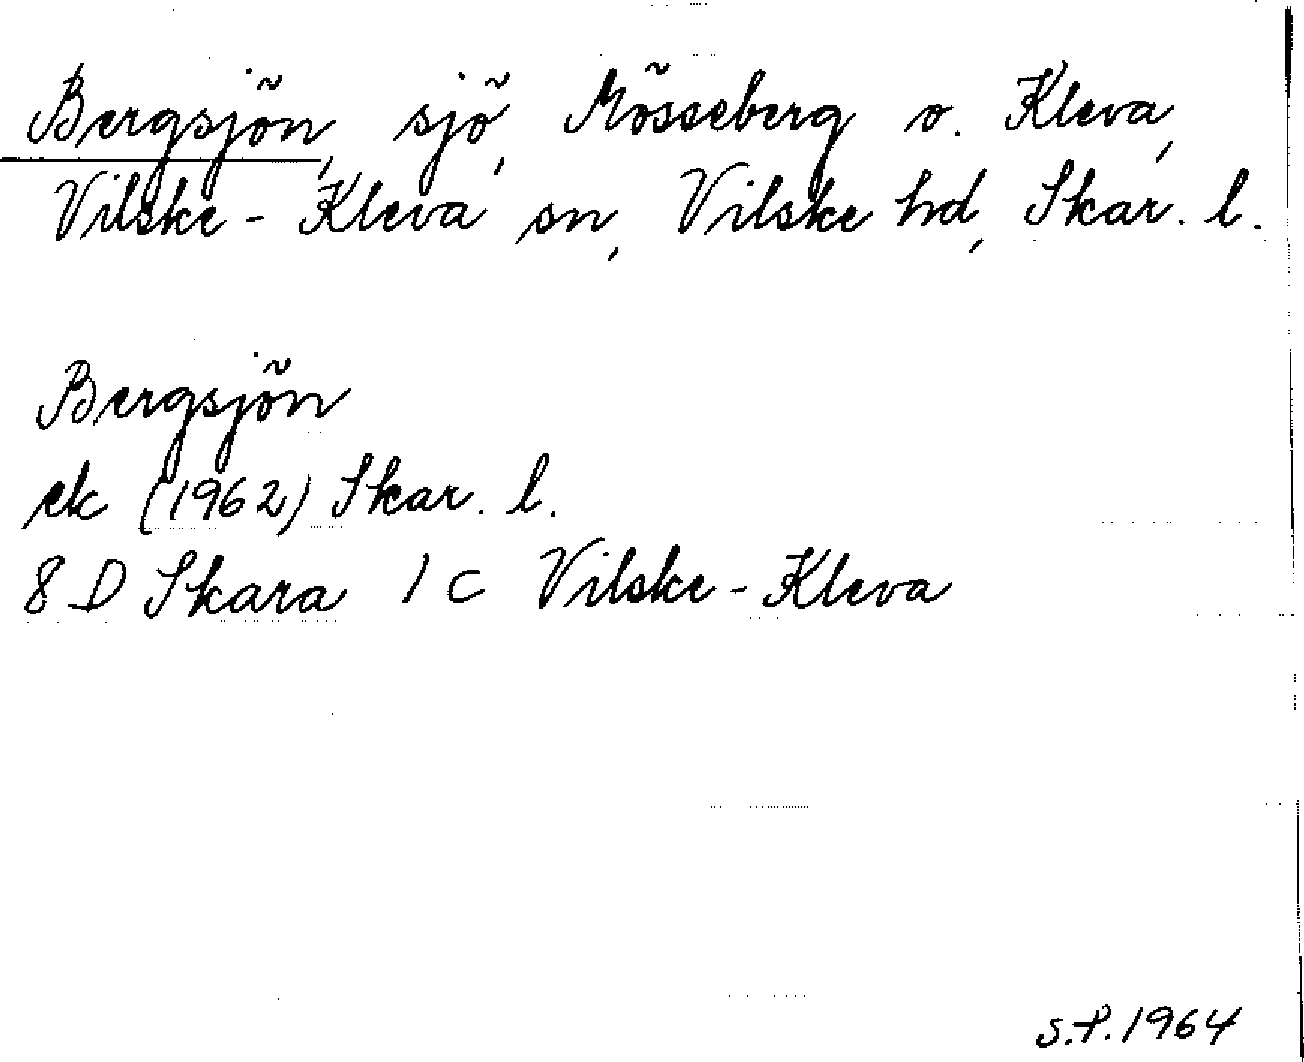 Bergsjön, sjö, Mösseberg o. Kleva,
Vilske-Kleva sn, Vilske hd, Skar. l.
Bergsjön
ek (1962) Skar. l.
8 D Skara 1 c Vilske-Kleva
S.P. 1964